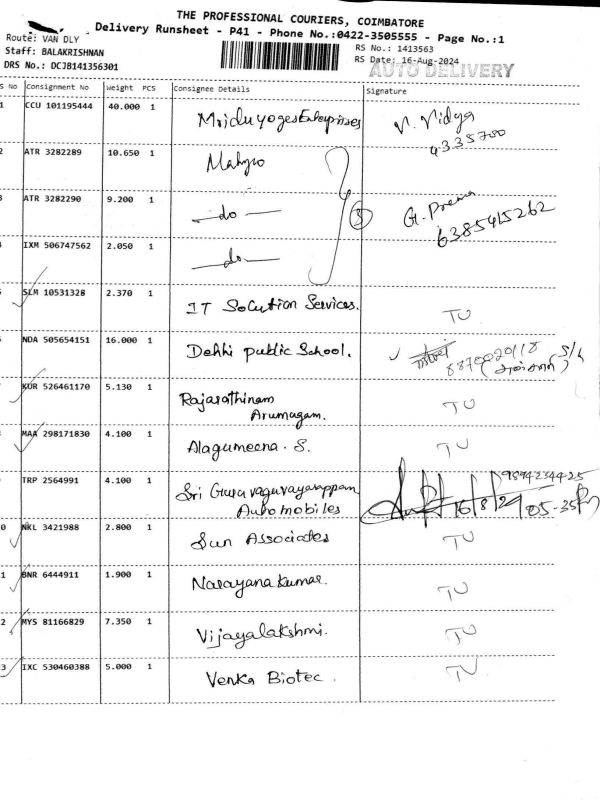 THE PROFESSIONAL COURIERS, COIMBATORE
Delivery Runsheet - P41 - Phone No.:0422-3505555 - Page No.:1
Route: VAN DLY
Staff: BALAKRISHNAN
DRS No.: DCJB141356301
RS No.: 1413563
RS Date: 16-Aug-2024
AUTO DELIVERY
S No Consignment No Weight PCS Consignee Details Signature
1 CCU 101195444 40.000 1 Mriduyoges Enterprises N. Vidya
4335700
2 ATR 3282289 10.650 1
3 ATR 3282290 9.200 1 — do — ③ G. Prema
6385415262
4 IXM 506747562 2.050 1 — do —
5 SLM 10531328 2.370 1 IT Solution Services. TU
6 NDA 505654151 16.000 1 Delhi public School. 8870020118 S/L
7 KUR 526461170 5.130 1 Rajarathinam TU
Arumugam.
8 MAA 298171830 4.100 1 Alagumeena. S. TU
9894234425
9 TRP 2564991 4.100 1 Sri Guruvaguvayarappan 16/8/24 05-35
Automobiles
0 NKL 3421988 2.800 1 Sun Associates TU
1 BNR 6444911 1.900 1 Narayana Kumar. TU
2 MYS 81166829 7.350 1 Vijayalakshmi. TU
3 IXC 530460388 5.000 1 Venka Biotec. TU